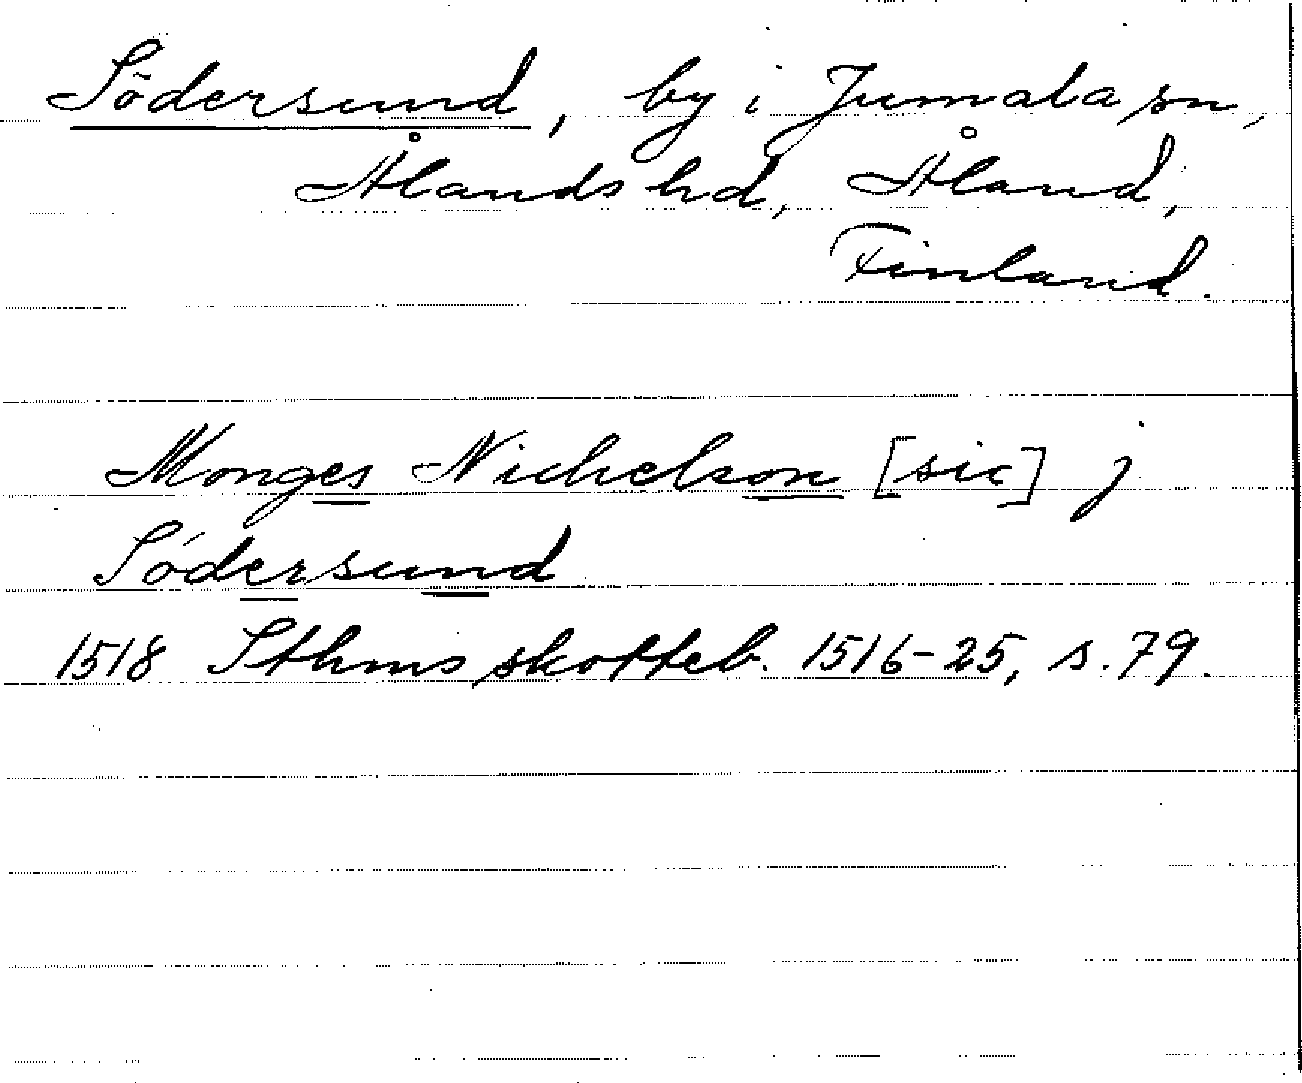 Södersund, by i Jumala sn,
Ålands hd, Åland,
Finland.
Monges Nichelson [sic] j
Södersund
1518 Sthms skotteb. 1516-25, s. 79.